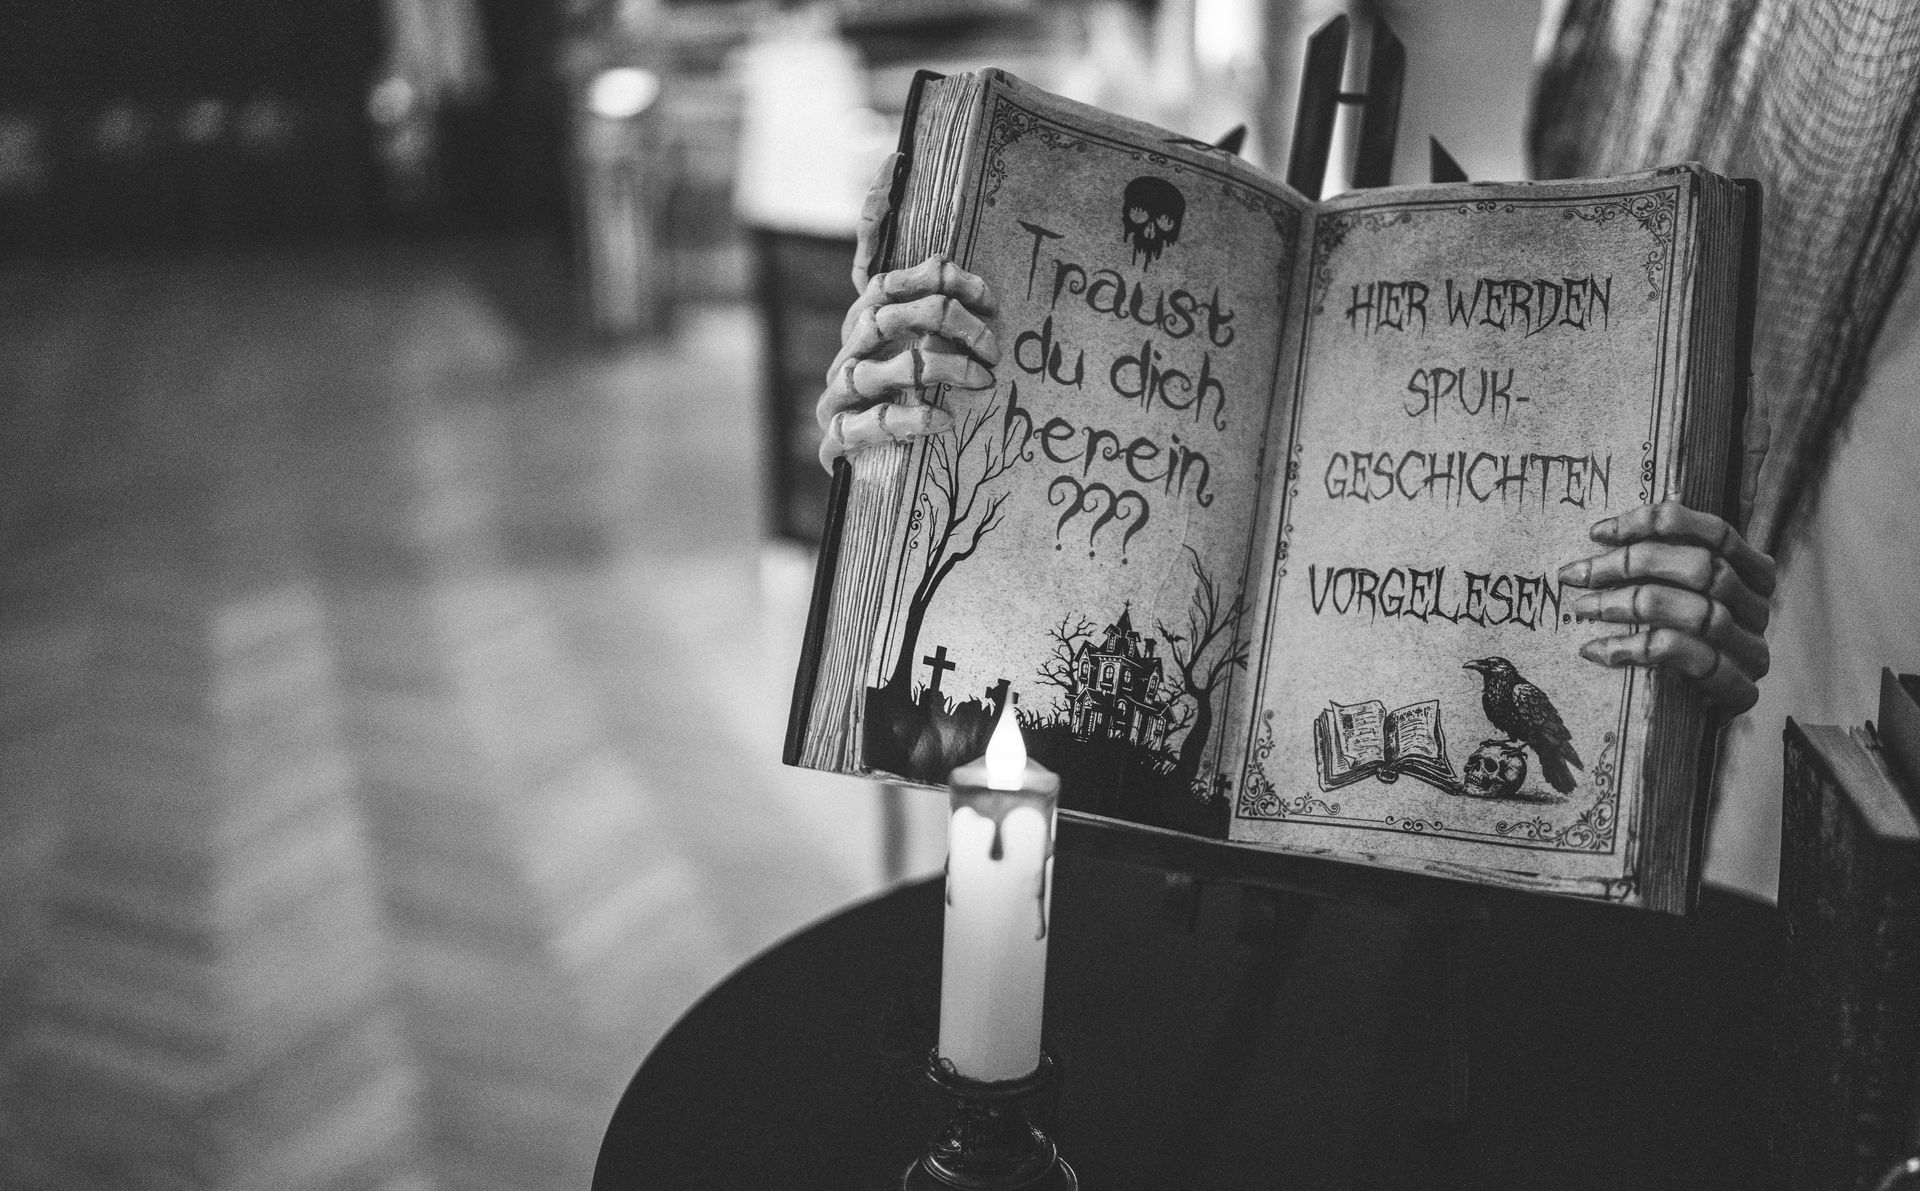 Traust
du dich
herein
???
HIER WERDEN
SPUK-
GESCHICHTEN
VORGELESEN...